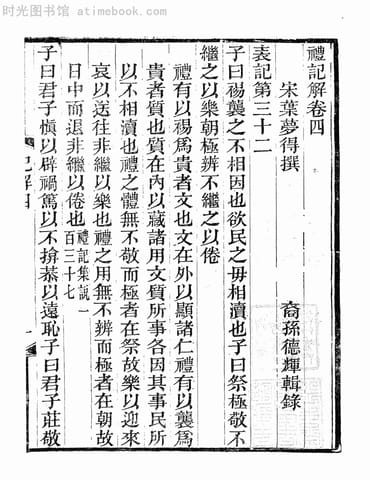 时光图书馆 atimebook.com
禮記解卷四
宋葉夢得撰　裔孫德輝輯錄
表記第三十二
子曰裼襲之不相因也欲民之毋相瀆也子曰祭極敬不
繼之以樂朝極辨不繼之以倦
禮有以裼爲貴者文也文在外以顯諸仁禮有以襲爲
貴者質也質在内以藏諸用文質所事各因其事民所
以不相瀆也禮之體無不敬而極者在祭故樂以迎來
哀以送往非繼以樂也禮之用無不辨而極者在朝故
日中而退非繼以倦也禮記集說一百三十七
子曰君子愼以辟禍篤以不揜恭以遠恥子曰君子莊敬
記解四
一